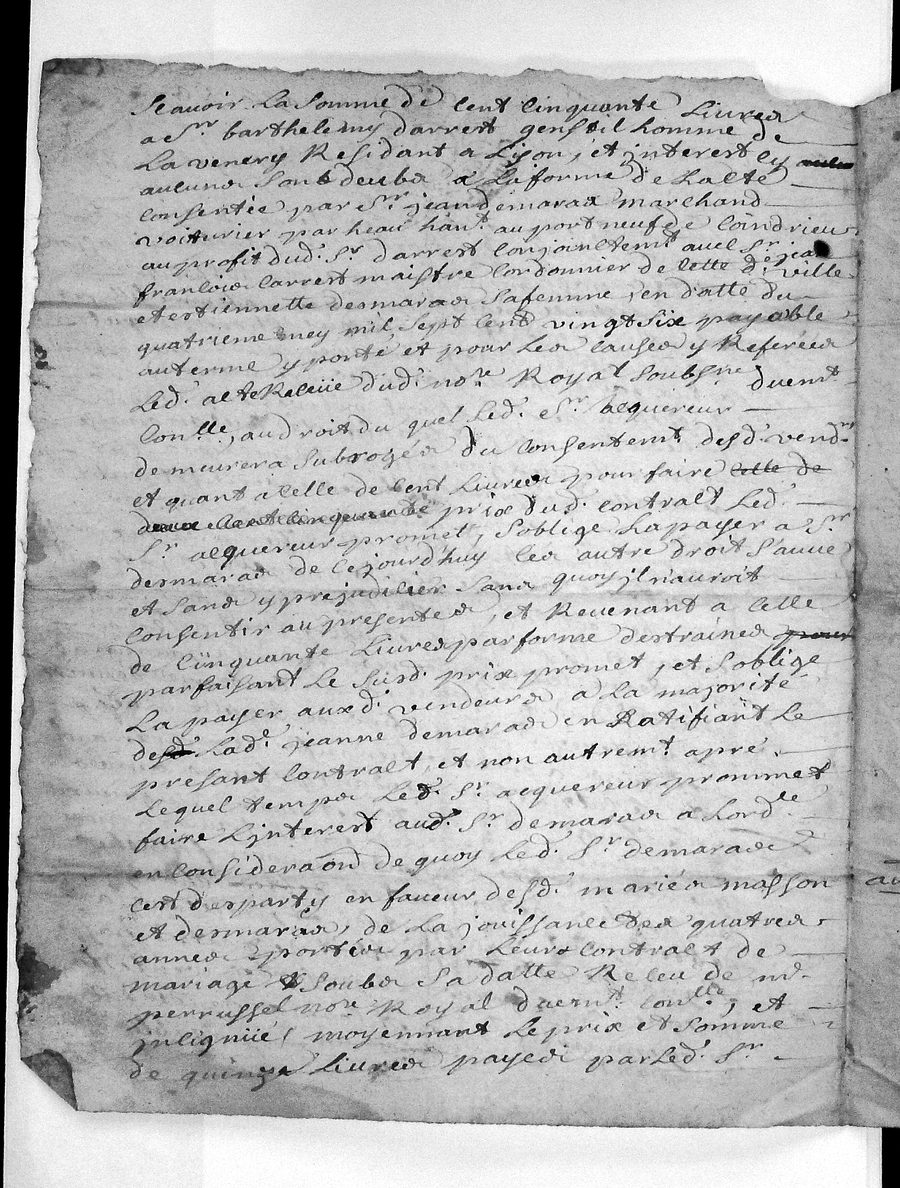 Scavoir La somme de Cent Cinquante Livres
a Sr barthelemy darrert gentil homme de
La venery Residant a Lyon, et interest cy
aucuns sont deubs a La forme de Lacte
Consentie par Sr jean demaras marchand
voiturier par heau han.t au port neuf de Coindrieu
au profit dud. Sr. darrert Conjoinctemt. avec Sr. jean
francois Carrert maistre Cordonnier de Cette d. ville
et estiennette desmaras sa femme, en datte du
quatrieme mey mil sept Cent vingt Six payable
au terme y porté, et pour Les Causes y Referées
Led. acte Receüe dud. nore. Royal soubsne. duemt.
Conlle, au droit du quel Led. Sr. acquereur
demeurera subrogés du Consentemt. desd. vendrs.
et quant a Celle de Cent Livres pour faire Celle de
Cent Cinquante prix dud. Contract Led.
Sr. acquereur promet, s'oblige La payer a Sr
desmaras de Cejourd'huy Les autre droit Sauve
et Sans y prejudicier Sans quoy jl n'auroit
Consentir au presentes, et Revenant a Celle
de Cinquante Livres par forme destraines pour
parfaisant Le susd. prix promet, et S'oblige
La payer auxd. vendeurs a La majorité
desd. Lad.e jeanne demaras en Ratifiant Le
presant Contract, et non autremt. apré
Lequel temps Led. Sr. acquereur prommet
faire L'jnterert aud. Sr demaras a Lordle
en Consideraon de quoy Led. Sr demaras
Cest desparty en faveur desd. mariés masson
et desmaras, de La jouissance des quatres
annes portés par Leurs Contract de
mariage soubs sa datte Receu de me.
perrussel nore Royal duemt. Conlle, et
jnsigniié, moyennant Le prix et Somme
de quinze Livres payes par Led. Sr.